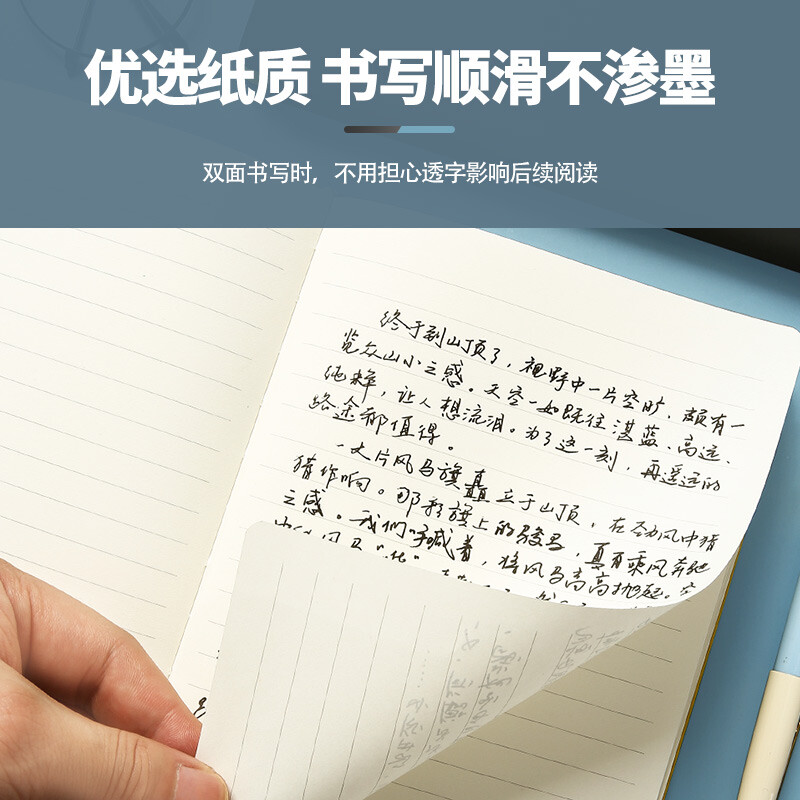 优选纸质 书写顺滑不渗墨
双面书写时，不用担心透字影响后续阅读
终于到山顶了，视野中一片空旷，颇有一
览众山小之感。天空一如既往湛蓝、高远、
纯粹，让人想流泪。为了这一刻，再遥远的
路途都值得。
一大片风马旗矗立于山顶，在劲风中猎
猎作响。那彩旗上的骏马，真有乘风奔驰
之感。我们呼喊着，将风马高高抛起。